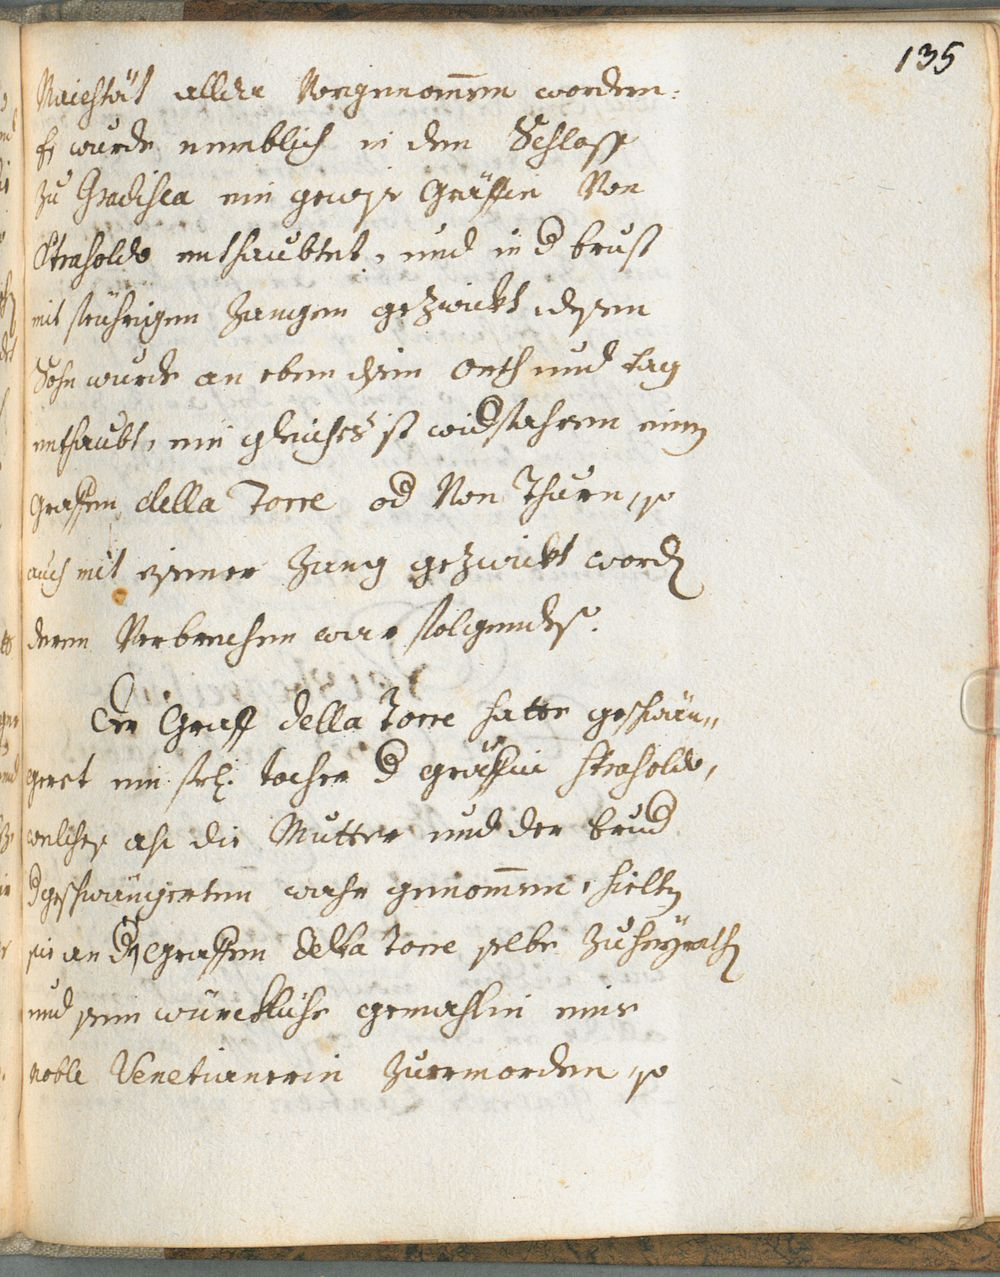 135
Maiestät allda Vorgenom̅en worden:
Es wurde nemblich in dem Schloss
zu Gradisca ein gewise Gräffin Von
Strasoldo enthaubtet, und in d brust
mit Zangen gezwickt, dessen
Sohn wurde an eben disem orth und tag
enthaubt, ein gleiches ist widfahren einem
Graffen della Torre od Von Thurn, so
auch mit einer Zang gezwickt worden
deren Verbrechen war folgendes.
Der Graff della Torre hatte geschwän„
geret ein frl. tochter d gräffin Strasoldo,
welches als die Mutter und der brud
d geschwängerten wahr genom̅en, hielten
sie an den Graffen della Torre selbe zu heÿrathen
und sein würckliche gemahlin eine
noble Venetianerin zu ermorden, so